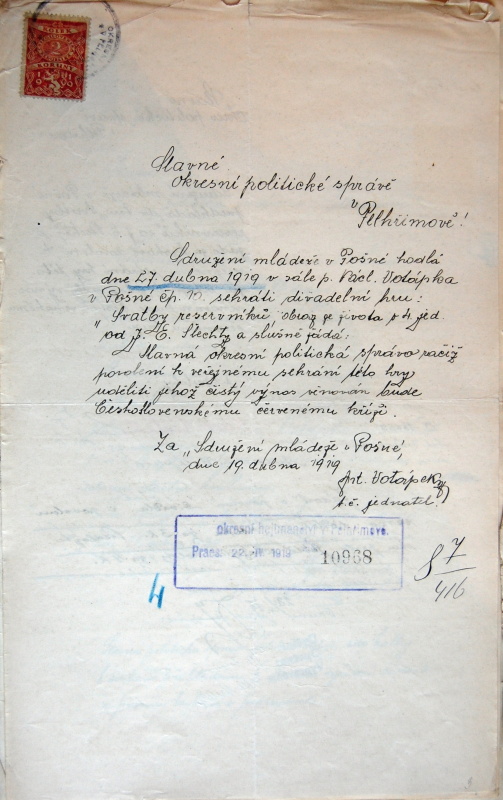 KOLEK
2
KORUNY
1919
Slavné
okresní politické správě
v Pelhřimově!
Sdružení mládeže v Pošné hodlá
dne 27. dubna 1919 v sále p. Václ. Votápka
v Pošné čp. 10. sehráti divadelní hru:
"Svatby reservníků obraz ze života o 4 jed.
od J. H. Šlechty a slušně žádá:
Slavná okresní politická správa račiž
povolení k veřejnému sehrání této hry
uděliti jehož čistý výnos věnován bude
Československému červenému kříži.
Za "Sdružení mládeže v Pošné,
dne 19. dubna 1919
Ant. Votápek
t. č. jednatel.
okresní hejtmanství v Pelhřimově.
1919
10968
4
7
416